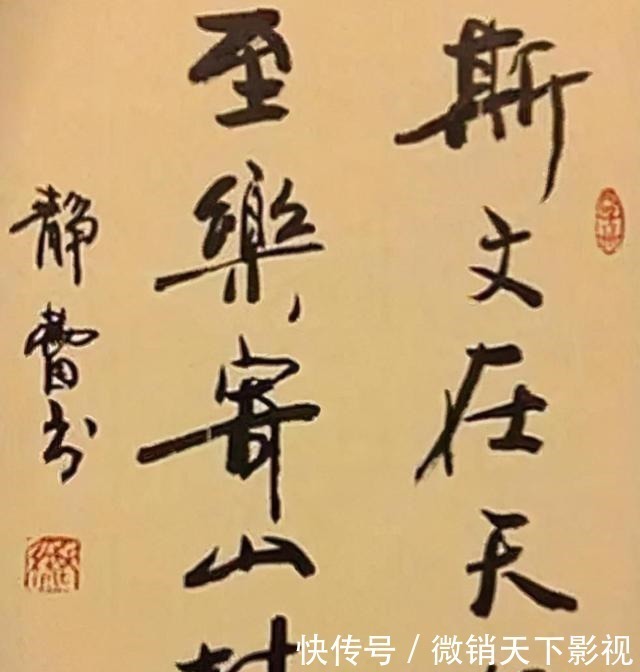 斯文在天
至樂寄山
静蕾书
快传号 / 微销天下影视